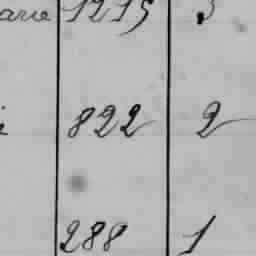 arie 1215 3
i 822 2
288 1